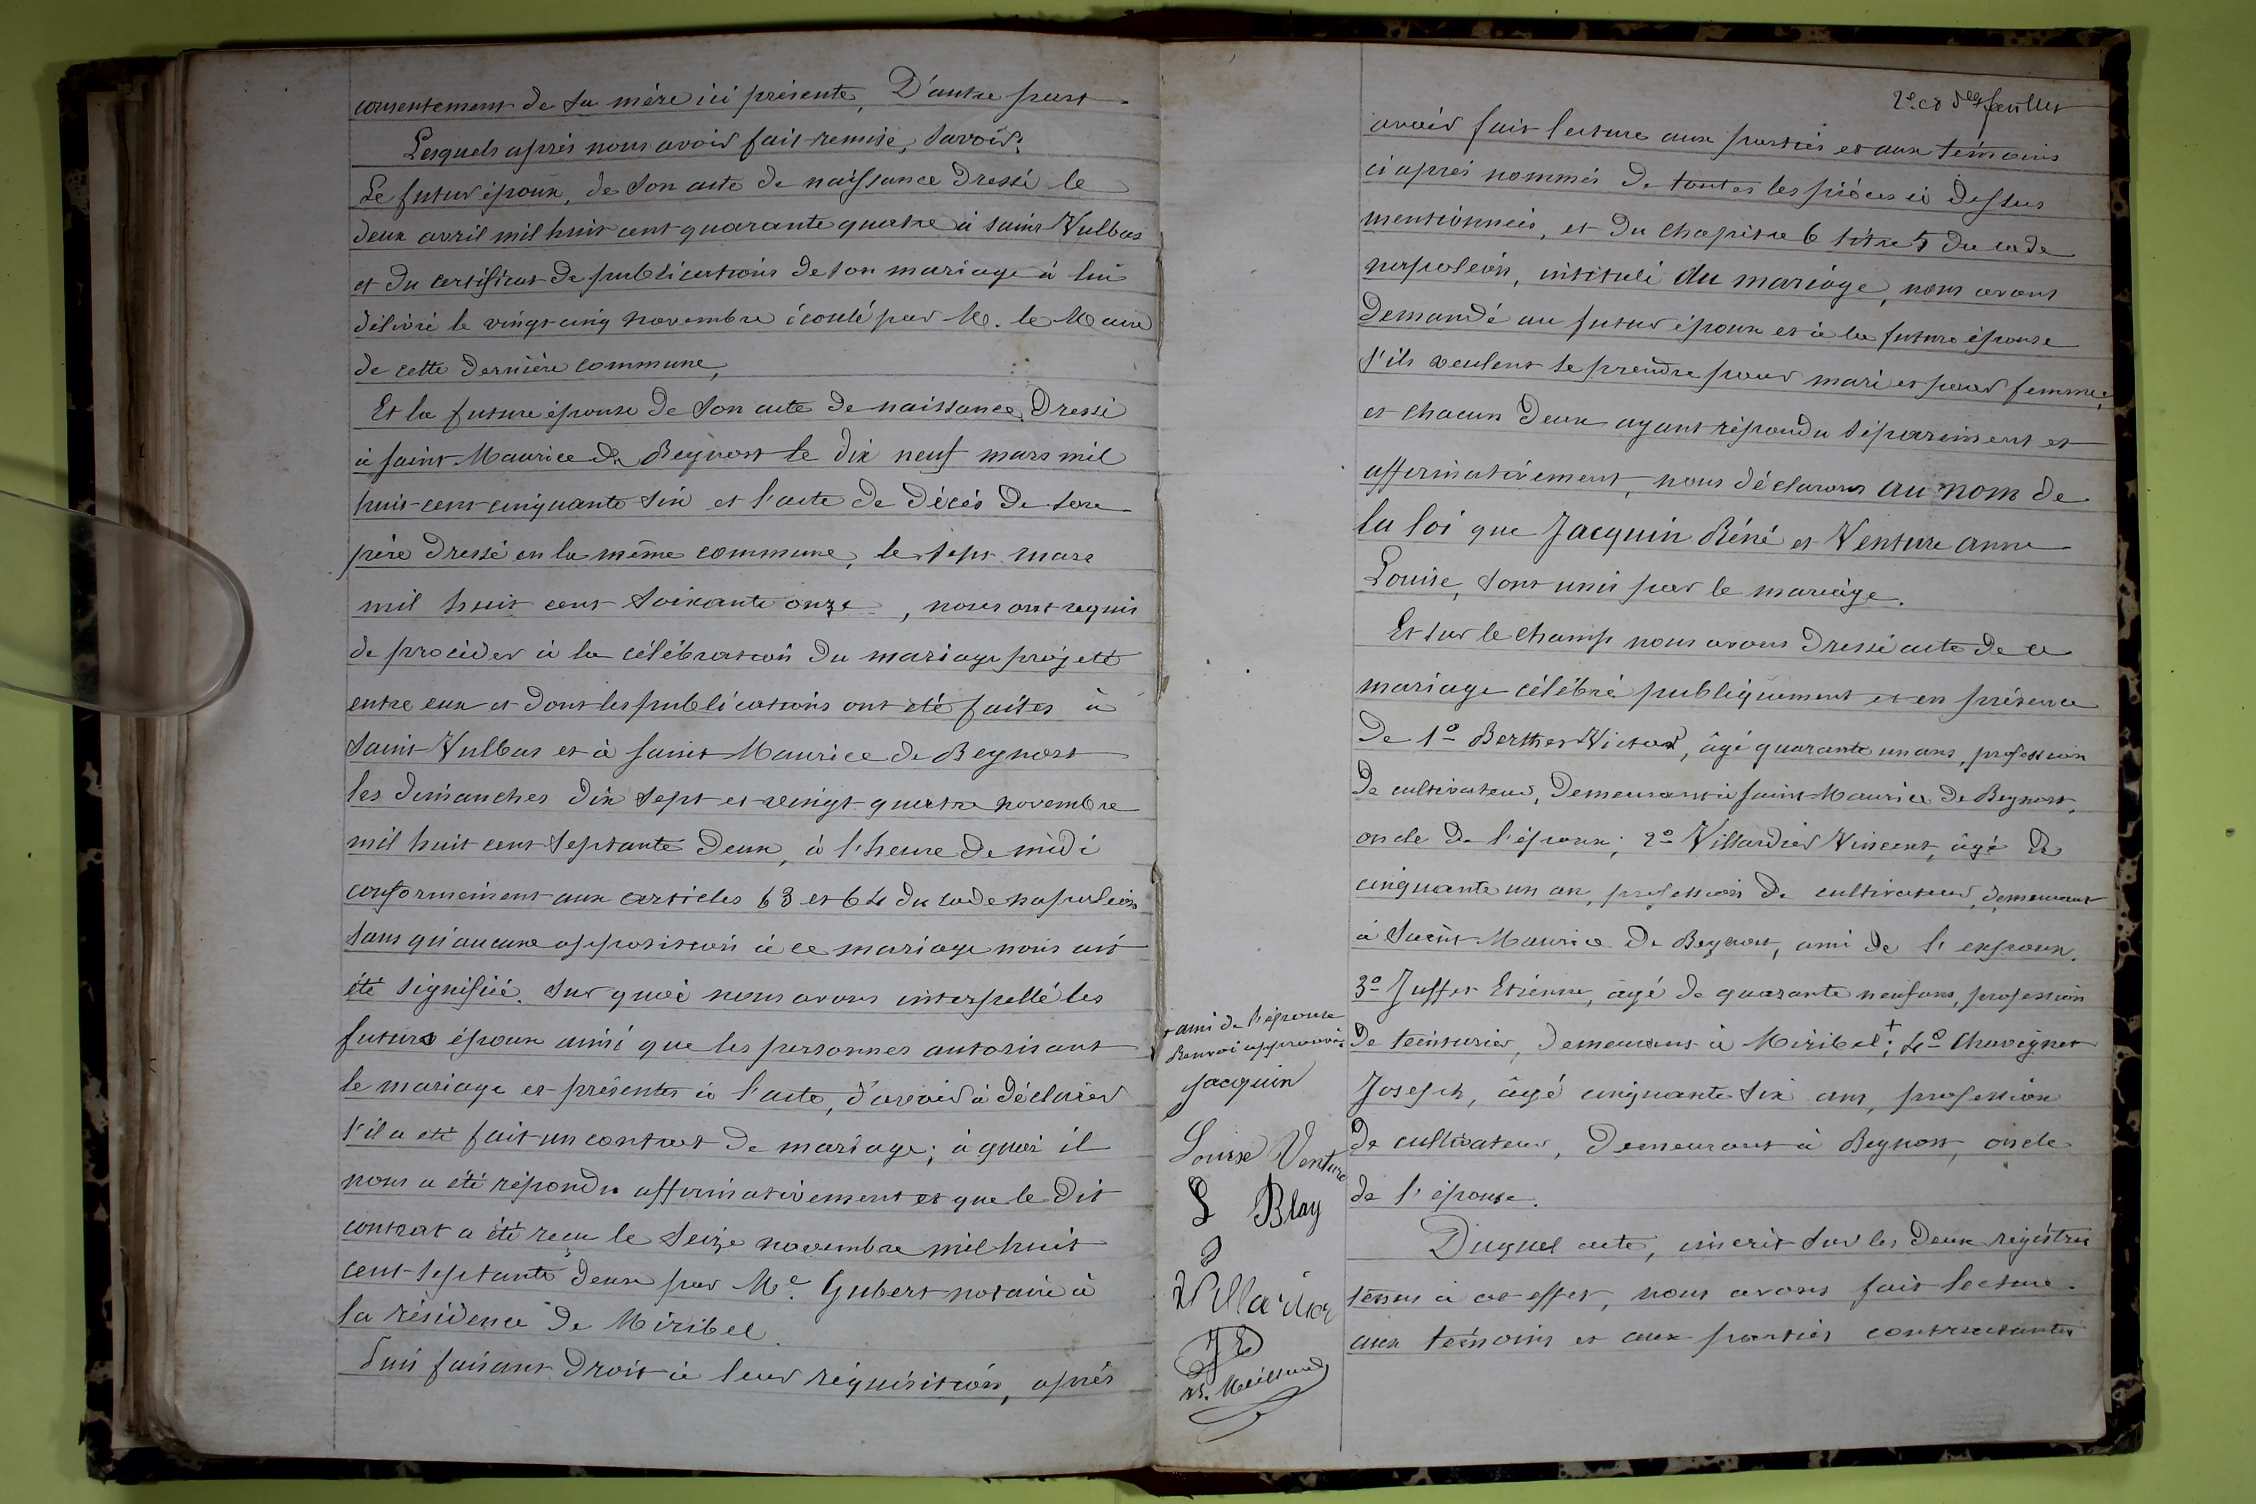 consentement de sa mère ici présente, D'autre part.
Lesquels après nous avoir fait remise, savoir:
Le futur époux, de son acte de naissance dressé le
deux avril mil huit cent quarante quatre à saint Vulbas
et du certificat de publications de son mariage à lui
délivré le vingt cinq novembre écoulé par M. le Maire
de cette dernière commune,
Et la future épouse de son acte de naissance, dressé
à saint Maurice de Beynost le dix neuf mars mil
huit cent cinquante six et l'acte de décès de son
père dressé en la même commune, le sept mars
mil huit cent soixante onze, nous ont requis
de procéder à la célébration du mariage projeté
entre eux et dont les publications ont été faites à
saint Vulbas et à saint Maurice de Beynost
les dimanches dix sept et vingt quatre novembre
mil huit cent septante deux, à l'heure de midi
conformément aux articles 63 et 64 du code napoléon
sans qu'aucune opposition à ce mariage nous ait
été signifiée. Sur quoi nous avons interpellé les
futurs époux ainsi que les personnes autorisant
le mariage et présentes à l'acte, d'avoir à déclarer
s'il a été fait un contrat de mariage; à quoi il
nous a été répondu affirmativement et que le dit
contrat a été reçu le seize novembre mil huit
cent septante deux par Me. Gubert notaire à
la résidence de Miribel.
Puis faisant droit à leur réquisition, après
2e et feuillet
avoir fait lecture aux parties et aux témoins
ci après nommés de toutes les pièces ci dessus
mentionnées, et du chapitre 6 titre 5 du code
napoléon, intitulé du mariage, nous avons
demandé au futur époux et à la future épouse
s'ils veulent se prendre pour mari et pour femme;
et chacun deux ayant répondu séparément et
affirmativement, nous déclarons au nom de
la loi que Jacquin Réné et Venture anne
Louise, sont unis par le mariage.
Et sur le champ nous avons dressé acte de ce
mariage célébré publiquement et en présence
de 1o Berthet Victor, âgé quarante un ans, profession
de cultivateur, demeurant à saint Maurice de Beynost,
oncle de l'époux; 2o Villardier Vincent, âgé de
cinquante un an, profession de cultivateur, demeurant
à saint Maurice de Beynost, ami de l'expoux.
3o Juffet Etienne, âgé de quarante neuf ans, profession
de teinturier, demeurant à Miribel+; 4o Chavignet
Joseph, âgé cinquante six ans, profession
de cultivateur, demeurant à Beynost, oncle
de l'épouse.
Duquel acte, inscrit sur les deux régistres
tenus à cet effet, nous avons fait lecture
aux témoins et aux parties contractantes
+ ami de l'épouse
Renvoi approuvé
Jacquin
Louise Venture
Blay
Villardier
JE